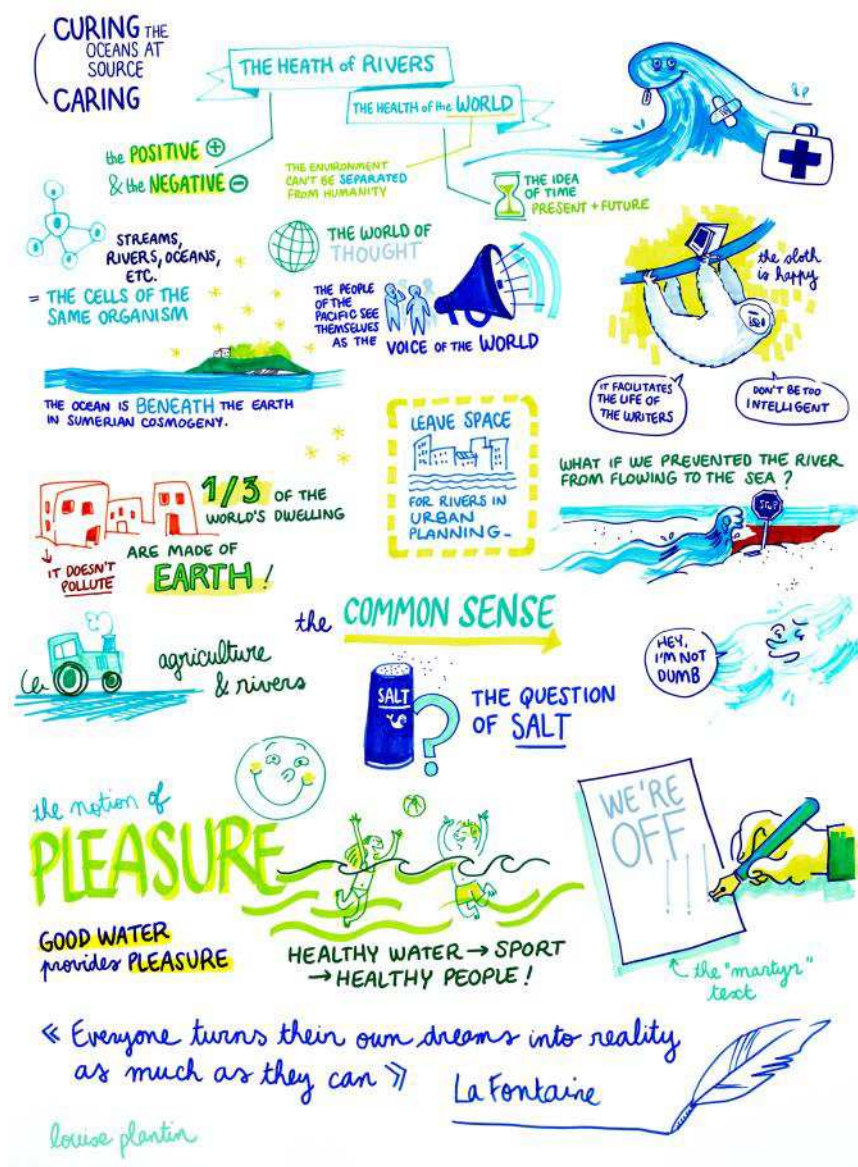 CURING THE
OCEANS AT
SOURCE
CARING
THE HEATH of RIVERS
THE HEALTH of the WORLD
the POSITIVE +
& the NEGATIVE -
THE ENVIRONMENT
CAN'T BE SEPARATED
FROM HUMANITY
THE IDEA
OF TIME
PRESENT + FUTURE
STREAMS,
RIVERS, OCEANS,
ETC.
= THE CELLS OF THE
SAME ORGANISM
THE WORLD OF
THOUGHT
THE PEOPLE
OF THE
PACIFIC SEE
THEMSELVES
AS THE
VOICE OF THE WORLD
the sloth
is happy
IT FACILITATES
THE LIFE OF
THE WRITERS
DON'T BE TOO
INTELLIGENT
THE OCEAN IS BENEATH THE EARTH
IN SUMERIAN COSMOGENY.
LEAVE SPACE
FOR RIVERS IN
URBAN
PLANNING_
WHAT IF WE PREVENTED THE RIVER
FROM FLOWING TO THE SEA ?
STOP
1/3 OF THE
WORLD'S DWELLING
ARE MADE OF
EARTH !
IT DOESN'T
POLLUTE
the COMMON SENSE
agriculture
& rivers
HEY,
I'M NOT
DUMB
SALT
THE QUESTION
OF SALT
the notion of
PLEASURE
GOOD WATER
provides PLEASURE
HEALTHY WATER → SPORT
→ HEALTHY PEOPLE !
WE'RE
OFF
the "martyr"
text
« Everyone turns their own dreams into reality
as much as they can »
La Fontaine
louise plantin